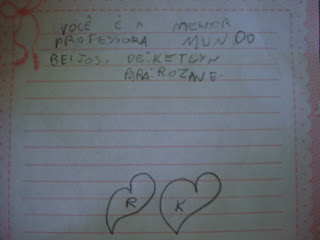 VOCÊ É A MELHOR
PROFESSORA MUNDO
BEIJOS: DE: KETLYN
PARA: ROZANE.
R K